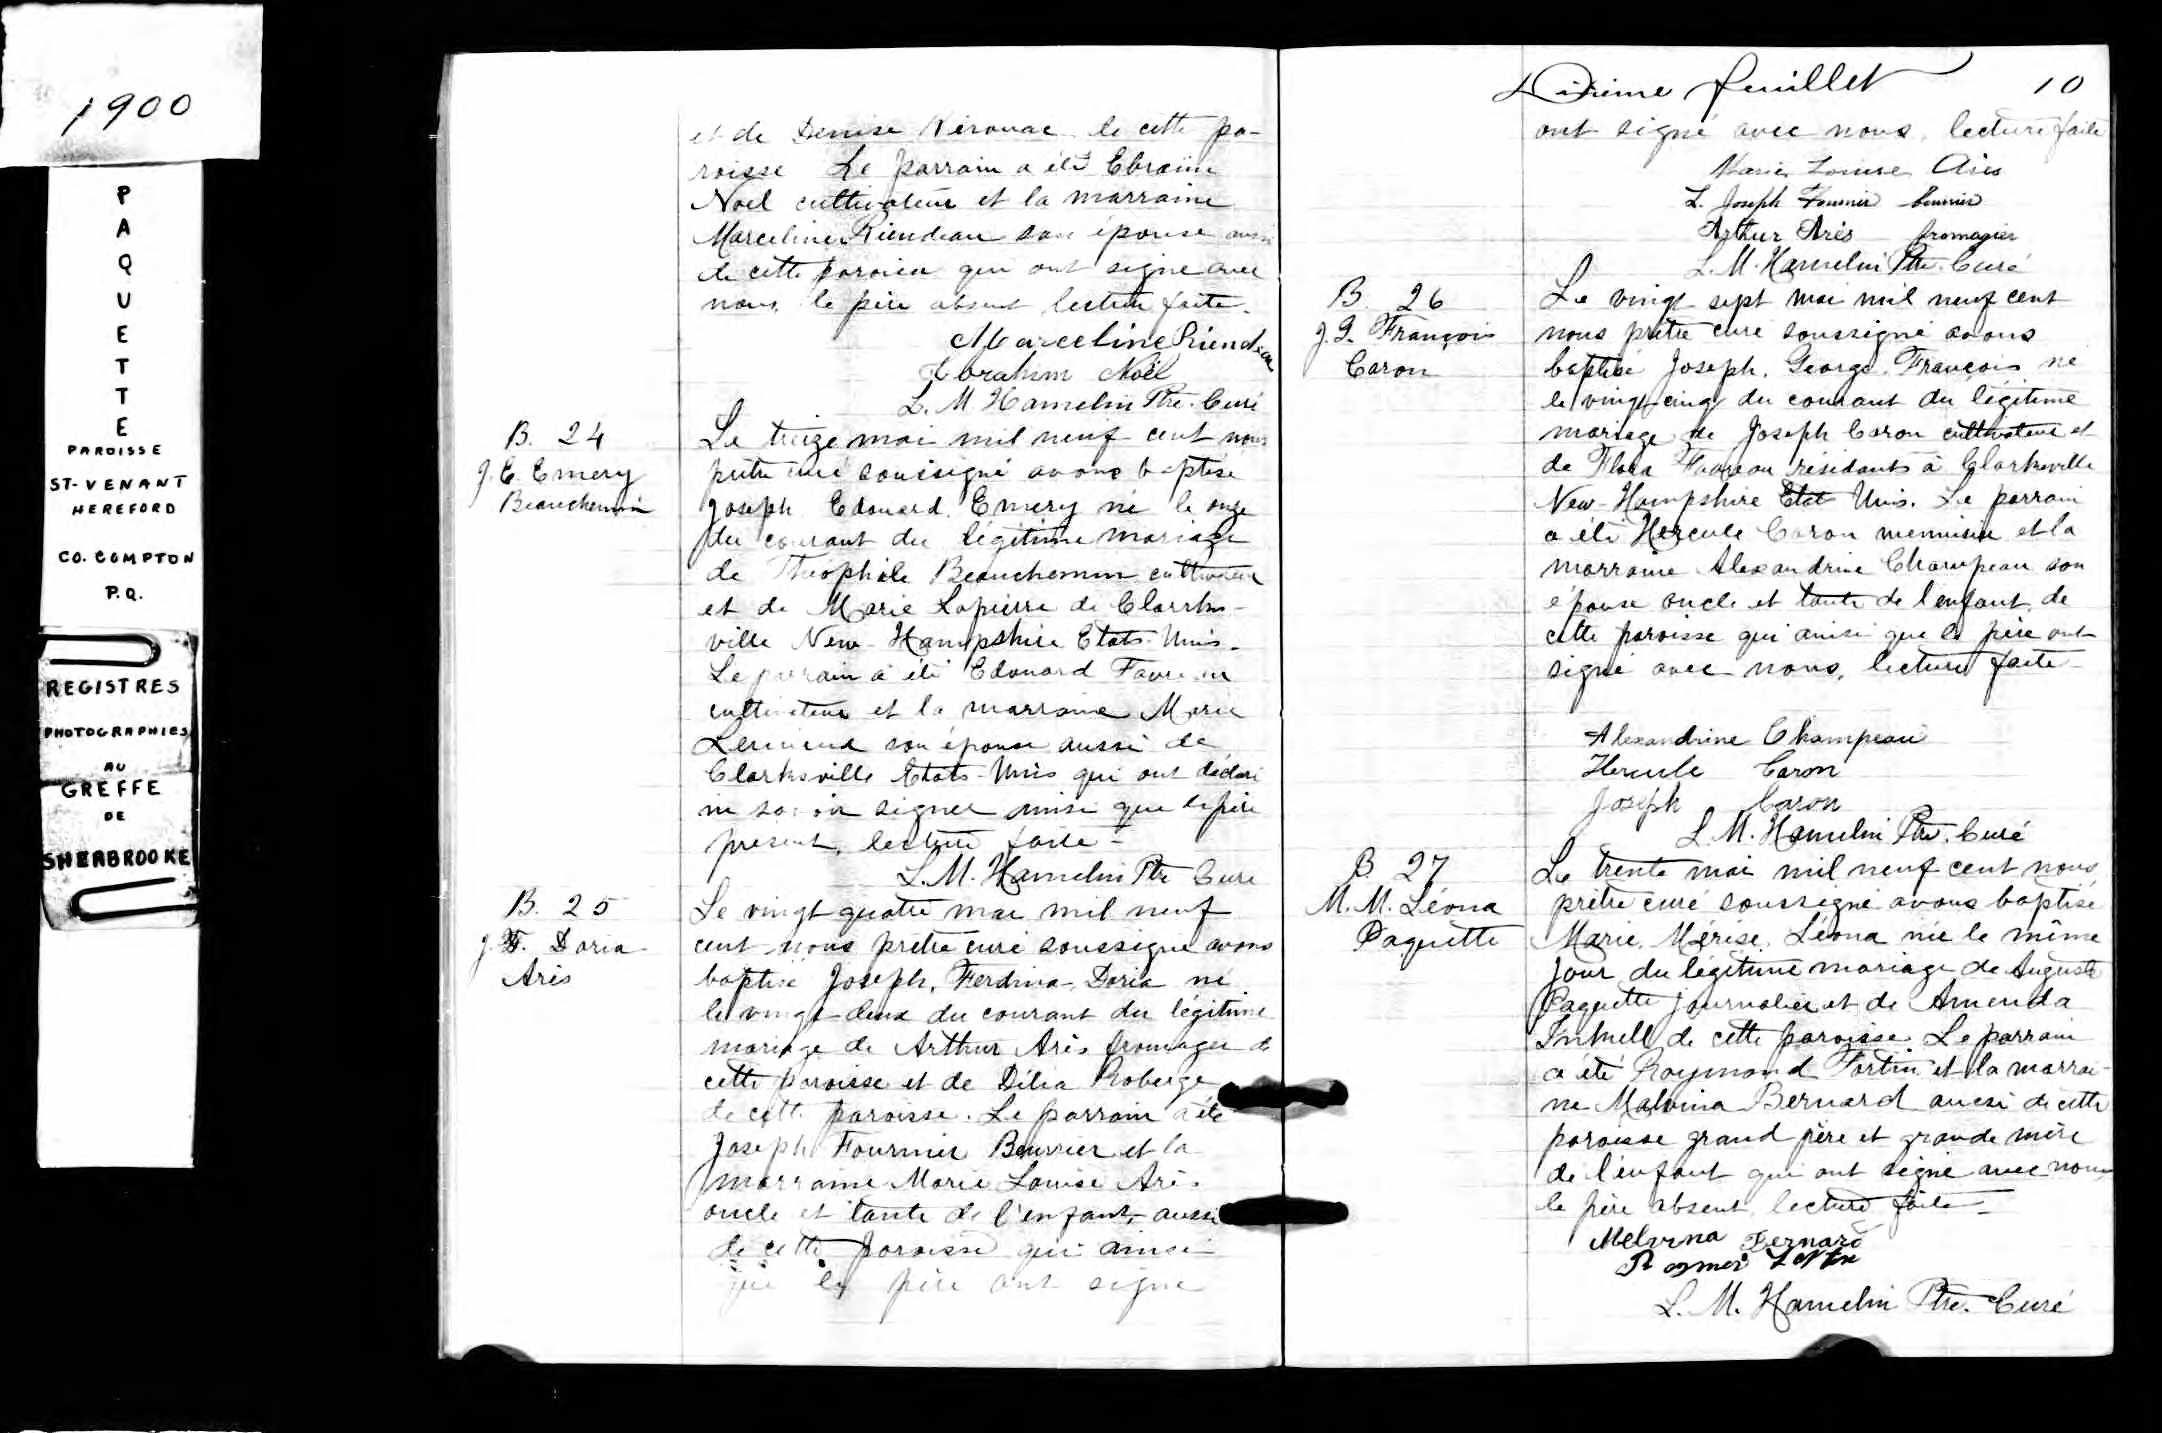 1900
P
A
Q
U
E
T
T
E
PAROISSE
ST-VENANT
HEREFORD
CO. COMPTON
P.Q.
REGISTRES
PHOTOGRAPHIES
AU
GREFFE
DE
SHERBROOKE
et de Denise Kérouac de cette pa-
roisse Le parrain a été Ebraïm
Noel cultivateur et la marraine
Marceline Riendeau son épouse aussi
de cette paroisse qui ont signé avec
nous, le père absent lecture faite.
Marceline Riendeau
Abraham Noël
L. M. Hamelin Ptre. Curé
B. 24
J. E. Emery
Beauchemin
Le treize mai mil neuf cent nous
prêtre curé soussigné avons baptisé
Joseph Edouard Emery né le onze
du courant du légitime mariage
de Théophile Beauchemin cultivateur
et de Marie Lapierre de Clarks-
ville New-Hampshire Etats-Unis.
Le parrain a été Edouard Favreau
cultivateur et la marraine Marie
son épouse aussi de
Clarksville Etats-Unis qui ont déclaré
ne savoir signer ainsi que le père
present, lecture faite-
L. M. Hamelin Ptre Curé
B. 25
J. F. Doria
Arès
Le vingt quatre mai mil neuf
cent nous prêtre curé soussigné avons
baptisé Joseph, Ferdina, Doria né
le vingt-deux du courant du légitime
mariage de Arthur Arès fromager de
cette paroisse et de Délia Roberge
de cette paroisse. Le parrain a été
Joseph Fournier Beurrier et la
marraine Marie Louise Arès
oncle et tante de l'enfant, aussi
de cette paroisse qui ainsi
que le père ont signé
Dixième feuillet 10
ont signé avec nous, lecture faite
Marie Louise Arès
L. Joseph Fournier beurrier
Arthur Arès fromagier
L. M. Hamelin Ptre. Curé
B. 26
J. G. François
Caron
Le vingt sept mai mil neuf cent
nous prêtre curé soussigné avons
baptisé Joseph, George, François né
le vingt-cinq du courant du légitime
mariage de Joseph Caron cultivateur et
de Flora Favreau résidants à Clarksville
New-Hampshire Etat Unis. Le parrain
a été Hercule Caron menuisier et la
marraine Alexandrine Champeau son
épouse oncle et tante de l'enfant, de
cette paroisse qui ainsi que le père ont
signé avec nous, lecture faite-
Alexandrine Champeau
Hercule Caron
Joseph Caron
L. M. Hamelin Ptre. Curé
B. 27
M. M. Léona
Paquette
Le trente mai mil neuf cent nous
prêtre curé soussigné avons baptisé
Marie, Mérise, Léona née le même
jour du légitime mariage de Auguste
Paquette journalier et de Amenda
de cette paroisse. Le parrain
a été Raymond Fortin et la marrai-
ne Malvina Bernard aussi de cette
paroisse grand père et grande mère
de l'enfant qui ont signé avec nous
le père absent, lecture faite-
Melvina Bernard
L. M. Hamelin Ptre. Curé